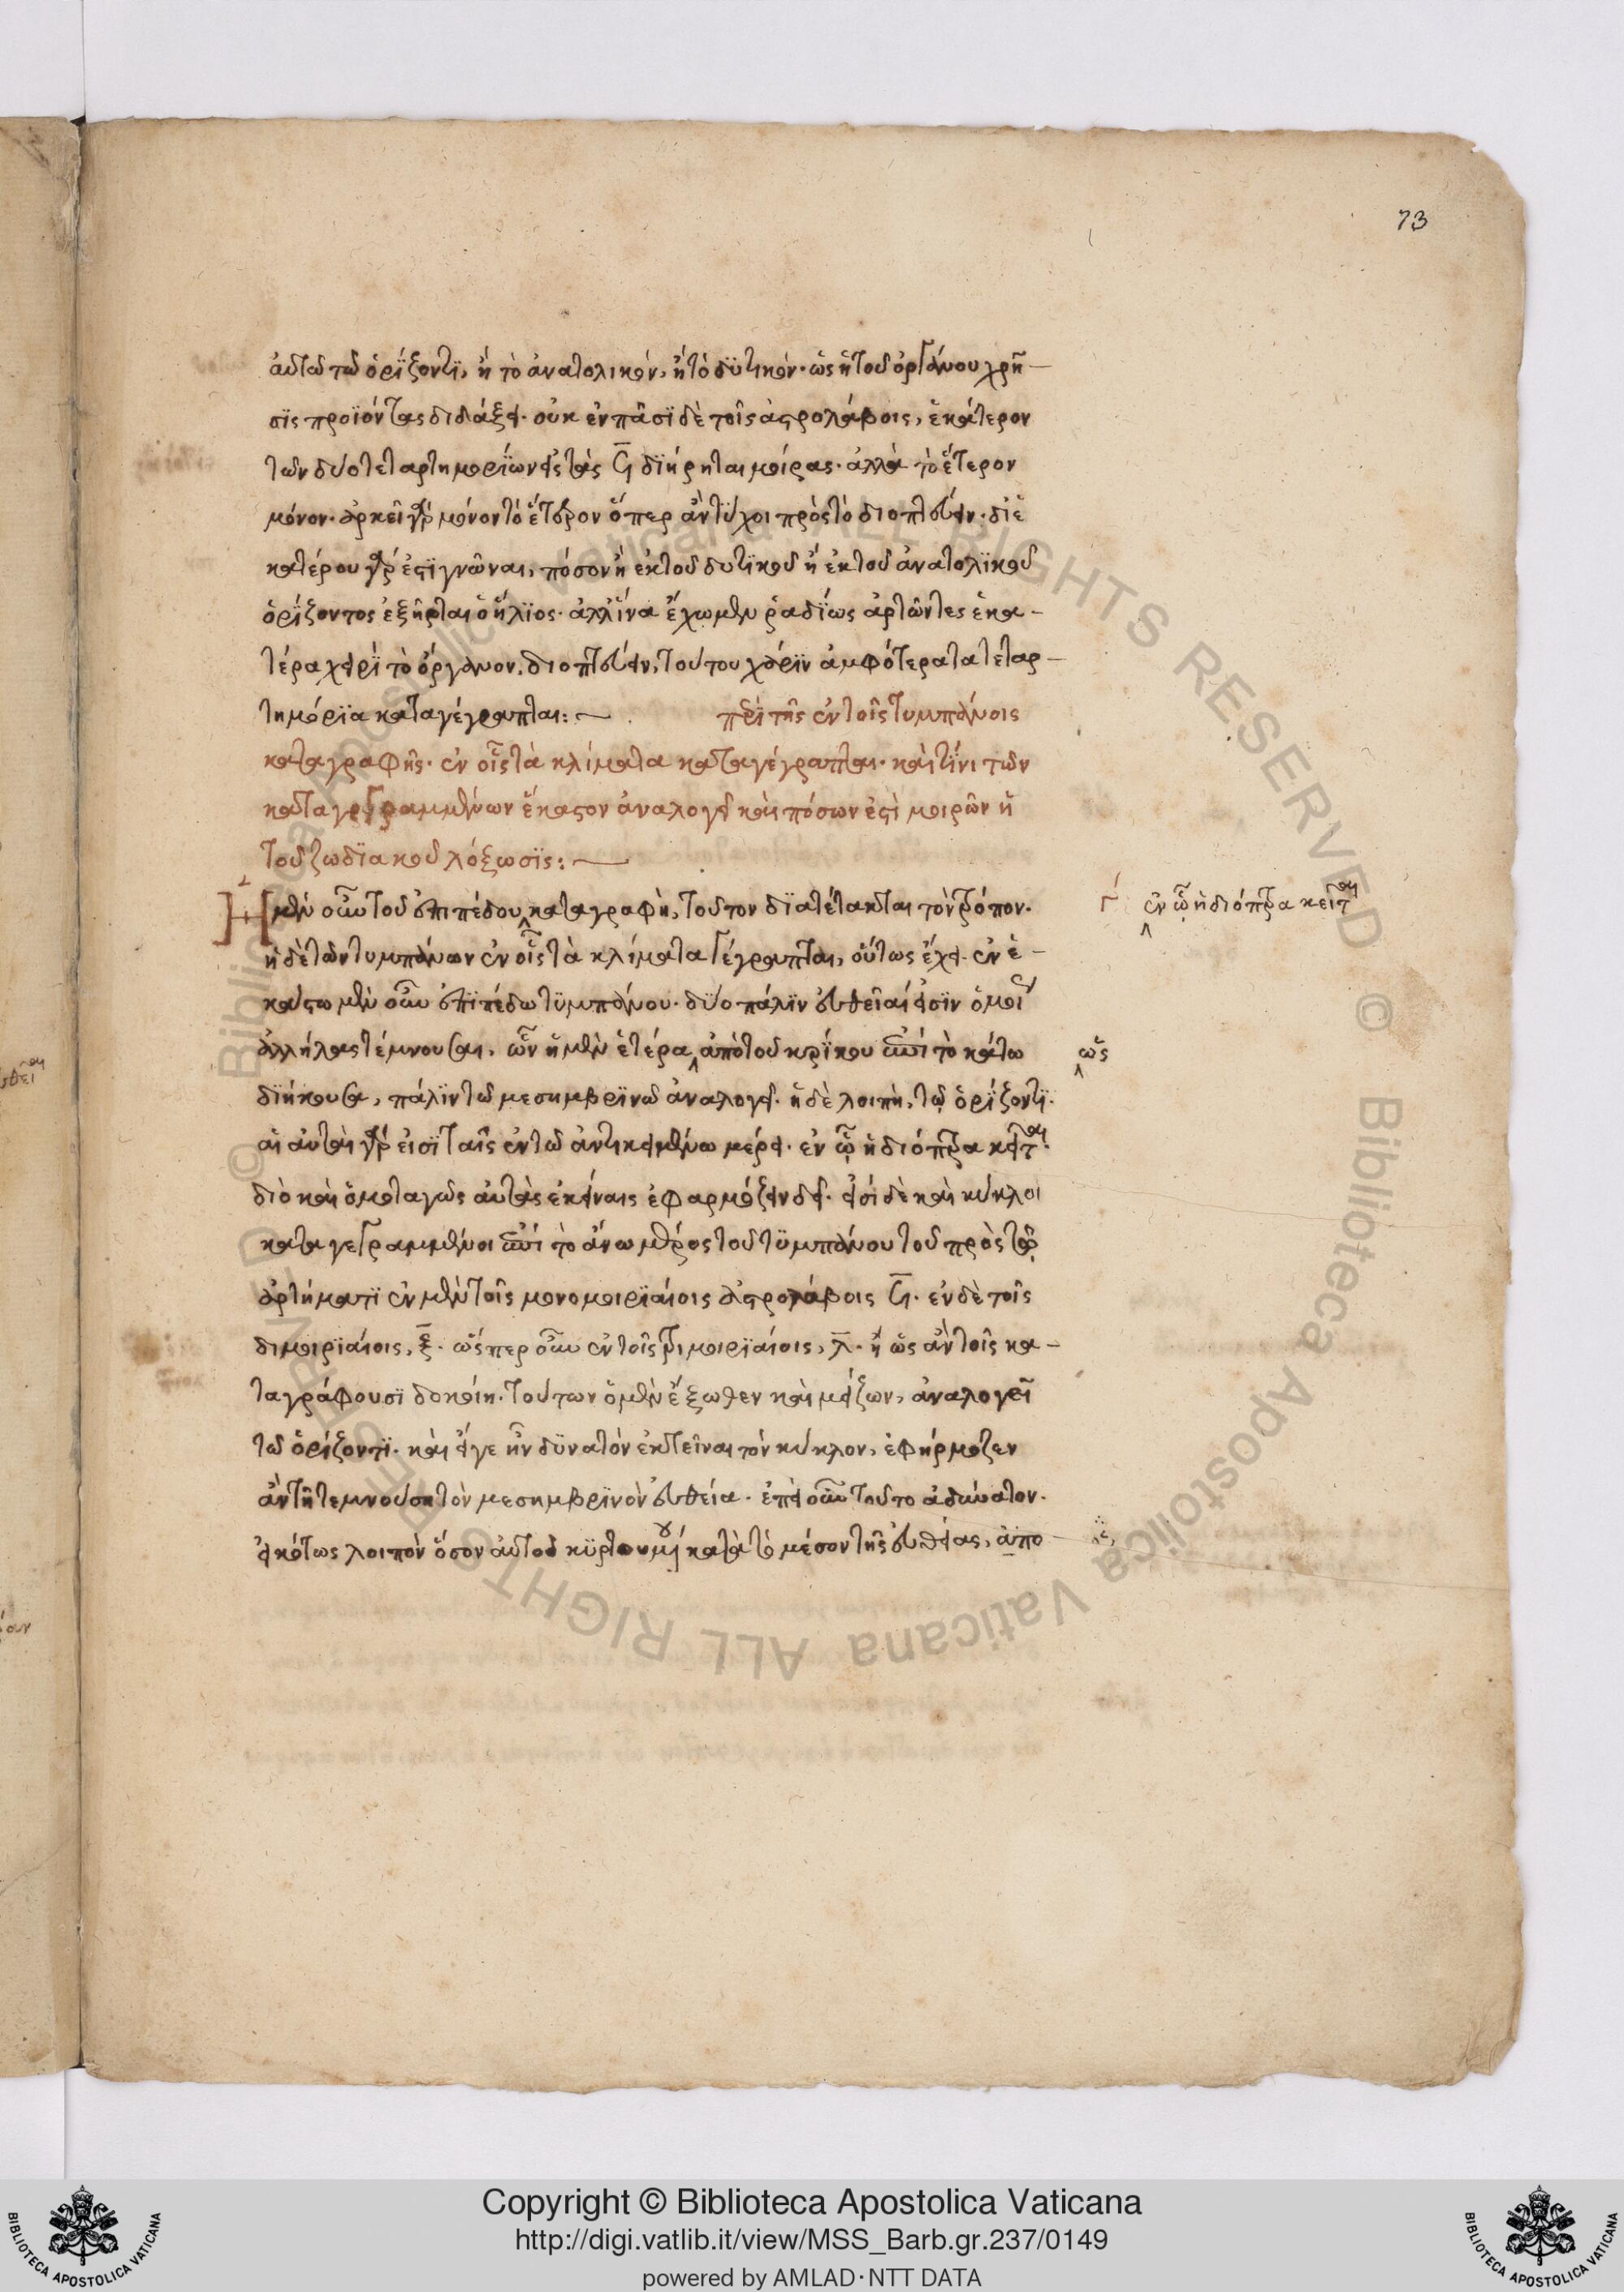 73
αὐτῶ τῶ ὁρίζοντϊ, ἢ τὸ ἀνατολικὸν, ἢ τὸ δϋτικόν· ὡς ἡ τοῦ ὀργάνου χρῆ-
σϊς προϊόντας διδάξει. οὐκ ἐν πᾶσϊ δὲ τοῖς ἀστρολάβοις, ἑκάτερον
τῶν δύο τεταρτημορϊων εἰς τὰς ϟ διήρηται μοίρας· ἀλλὰ τὸ ἕτερον
μόνον· ἀρκεῖ γὰρ μόνον τὸ ἕτερον ὅπερ ἂν τύχοι πρὸς τὸ διοπτεύειν· δι' ἑ
κατέρου γάρ ἐστϊ γνῶναι, πόσον ἢ ἐκ τοῦ δυτϊκοῦ ἢ ἐκ τοῦ ἀνατολϊκοῦ
ὁρίζοντος ἐξῆρται ὁ ἥλϊος· ἀλλ' ἵνα ἔχωμεν ῥαδΐως ἀρτῶντες ἑκα-
τέρα χειρῒ τὸ ὄργανον διοπτεύειν, τούτου χάρϊν ἀμφότερα τα τεταρ-
τημόρϊα καταγέγραπται:-
περὶ τῆς ἐν τοῖς τυμπάνοις
καταγραφῆς· ἐν οἷς τὰ κλίματα καταγέγραπται· καὶ τίνι τῶν
καταγεγραμμένων ἕκαστον ἀναλογεῖ καὶ πόσων ἐστὶ μοιρῶν ἡ
τοῦ ζωδϊακοῦ λόξωσϊς:-
Ἡ μὲν οὖν τοῦ ἐπιπέδου καταγραφὴ, τοῦτον δϊατέτακται τὸν τρόπον.
γ' ἐν ᾧ ἡ διόπτρα κεῖται
ἡ δὲ τῶν τυμπάνων ἐν οἷς τὰ κλίματα γέγραπται, οὕτως ἔχει. ἐν ἑ-
κάστω μὲν οὖν ἐπϊπέδω τϋμπάνου· δύο πάλϊν εὐθεῖαί εἰσϊν ὁμοῦ
ἀλλήλας τέμνουσαι, ὧν ἡ μὲν ἑτέρα ἀπὸ τοῦ κρίκου ἐπὶ τὸ κάτω
ὡς
δϊήκουσα, πάλϊν τῶ μεσημβρϊνῶ ἀναλογεῖ. ἡ δὲ λοιπὴ, τῷ ὁρϊζοντϊ.
αἱ αὐταὶ γάρ εἰσϊ ταῖς ἐν τῶ ἀντικειμένω μέρει. ἐν ᾧ ἡ διόπτρα κεῖται.
διὸ καὶ ὁμοταγῶς αὐτὰς ἐκείναις ἐφαρμόζειν δεῖ. εἰσὶ δὲ καὶ κύκλοι
καταγεγραμμένοι ἐπὶ τὸ ἄνω μέρος τοῦ τϋμπάνου τοῦ πρὸς τῷ
ἀρτήματϊ ἐν μὲν τοῖς μονομοιρϊαίοις ἀστρολάβοις ϟ. ἐν δὲ τοῖς
διμοιρϊαίοις, ξ. ὥσπερ οὖν ἐν τοῖς τριμοιρϊαίοις, λ. ἢ ὡς ἂν τοῖς κα-
ταγράφουσϊ δοκοίη. τούτων ὁ μὲν ἔξωθεν καὶ μείζων, ἀναλογεῖ
τῶ ὁρίζοντϊ. καὶ εἴγε ἦν δϋνατὸν ἐκτεῖναι τὸν κύκλον, ἐφήρμοζεν
ἂν τῆ τεμνούση τὸν μεσημβρϊνὸν εὐθεία. ἐπεὶ οὖν τοῦτο ἀδύνατον.
εἰκότως λοιπὸν ὅσον αὐτοῦ κϋρτούμενον κατὰ τὸ μέσον τῆς εὐθείας, ἀπο-
Copyright © Biblioteca Apostolica Vaticana
http://digi.vatlib.it/view/MSS_Barb.gr.237/0149
powered by AMLAD·NTT DATA